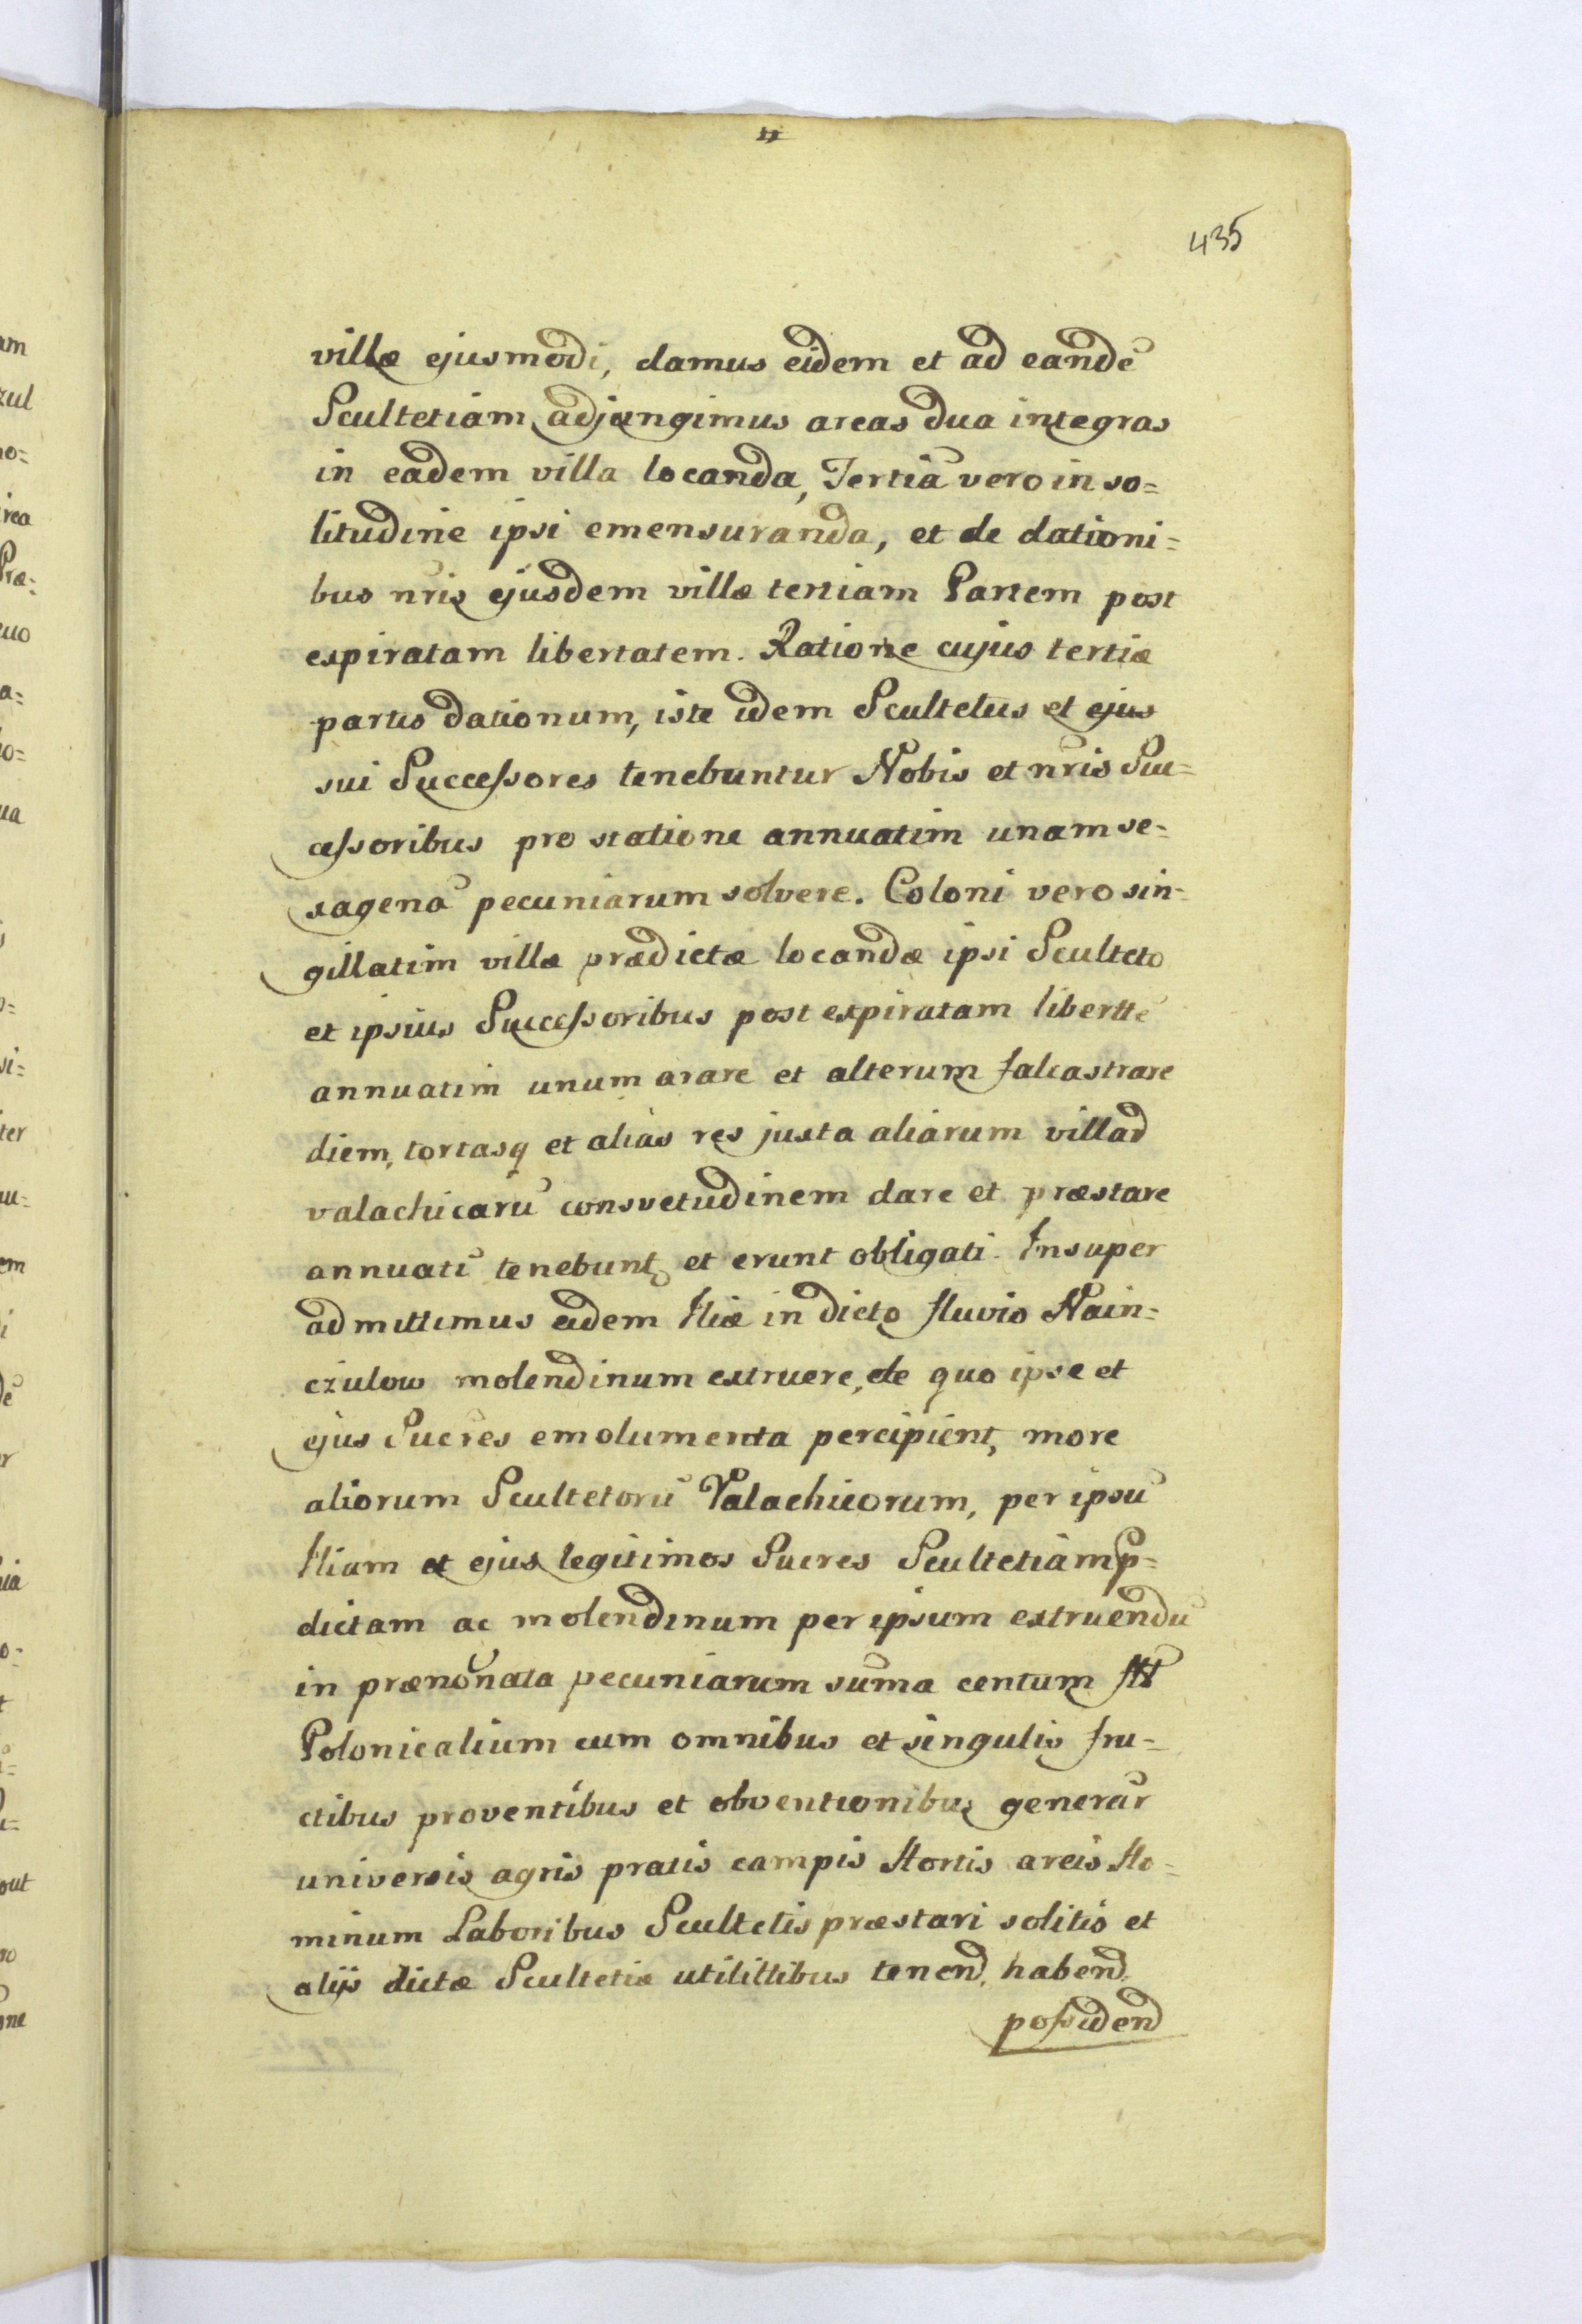 435
villæ ejusmodi, damus eidem et ad eandē
Scultetiam adjungimus areas dua integras
in eadem villa locanda, Tertiā vero in so=
litudine ipsi emensuranda, et de dationi=
bus nr̄is ejusdem villæ tertiam Partem post
expiratam libertatem. Ratione cujus tertiæ
partis dationum, iste idem Scultetus et ejus
sui Successores tenebuntur Nobis et nr̄is Suc=
cessoribus pro statione annuatim unam se=
xagenā pecuniarum solvere. Coloni vero sin=
gillatim villæ prædictæ locandæ ipsi Sculteto
et ipsius Successoribus post expiratam libertte
annuatim unum arare et alterum falcastrare
diem, tortasq et alias res juxta aliarum villar
valachicarū consvetudinem dare et præstare
annuatī tenebunt et erunt obligati. Insuper
admittimus eidem Iliæ in dicto fluvio Nain=
czulow molendinum extruere, de quo ipse et
ejus Sucr̄es emolumenta percipient, more
aliorum Scultetorū Valachicorum, per ipsū
Iliam et ejus legitimos Sucres Scultetiam p=
dictam ac molendinum per ipsum extruendū
in prænōnata pecuniarum sūma centum fl
Polonicalium cum omnibus et singulis fru=
ctibus proventibus et obventionibus generār
universis agris pratis campis Hortis areis Ho=
minum Laboribus Scultetis præstari solitis et
alijs dictæ Scultetiæ utilittibus tenend, habend,
possidend